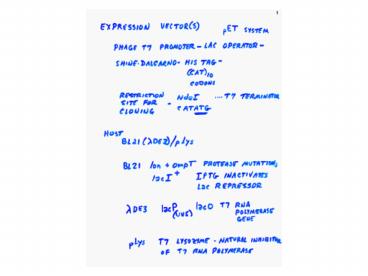 1
EXPRESSION VECTOR(S) pET SYSTEM
PHAGE T7 PROMOTER - LAC OPERATOR -
SHINE-DALGARNO - HIS TAG -
(CAT)10
CODONS
RESTRICTION SITE FOR CLONING - NdeI .... T7 TERMINATOR
CATATG
HOST
BL21 (λDE3)/plys
BL21 lon + ompT PROTEASE MUTATIONS
lacI+ IPTG INACTIVATES
LAC REPRESSOR
λDE3 lacP (UV5) lacO T7 RNA
POLYMERASE
GENE
plys T7 LYSOZYME - NATURAL INHIBITOR
OF T7 RNA POLYMERASE